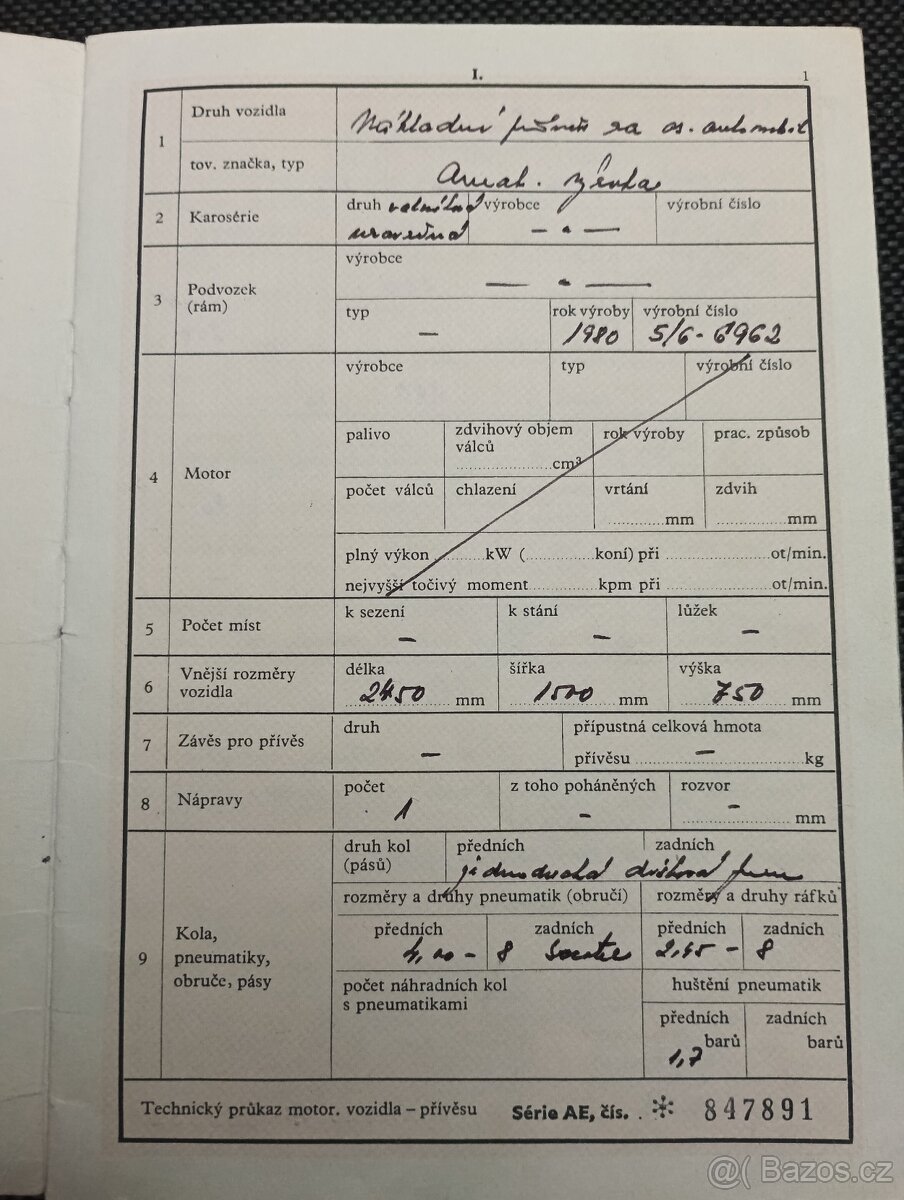 I.
1
1 Druh vozidla Nákladní přívěs za os. automobil
tov. značka, typ Amat.
2 Karosérie druh výrobce — " — výrobní číslo
3 Podvozek (rám) výrobce — " —
typ — rok výroby 1980 výrobní číslo 5/6-6962
4 Motor výrobce typ výrobní číslo
palivo zdvihový objem válců ............cm³ rok výroby prac. způsob
počet válců chlazení vrtání ............mm zdvih ............mm
plný výkon ............kW (............koní) při ............ot/min.
nejvyšší točivý moment ............kpm při ............ot/min.
5 Počet míst k sezení — k stání — lůžek —
6 Vnější rozměry vozidla délka 2450 mm šířka 1500 mm výška 750 mm
7 Závěs pro přívěs druh — přípustná celková hmota přívěsu — kg
8 Nápravy počet 1 z toho poháněných - rozvor - mm
9 Kola, pneumatiky, obruče, pásy druh kol (pásů) předních zadních
jednoduchá disková
rozměry a druhy pneumatik (obručí) rozměry a druhy ráfků
předních zadních předních zadních
4,00 - 8 2,45 - 8
počet náhradních kol s pneumatikami huštění pneumatik
předních 1,7 barů zadních barů
Technický průkaz motor. vozidla – přívěsu Série AE, čís. * 847891
@( Bazos.cz